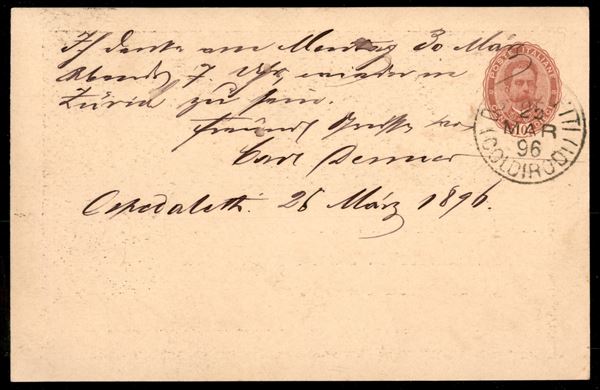 Ich denke am Montag 30 März
Abends 7 Uhr wieder in
Zürich zu sein.
Freundl Grüsse von
Carl
Ospedaletti. 26 März 1896.
POSTE ITALIANE
MAR
96
(COLDIRODI)